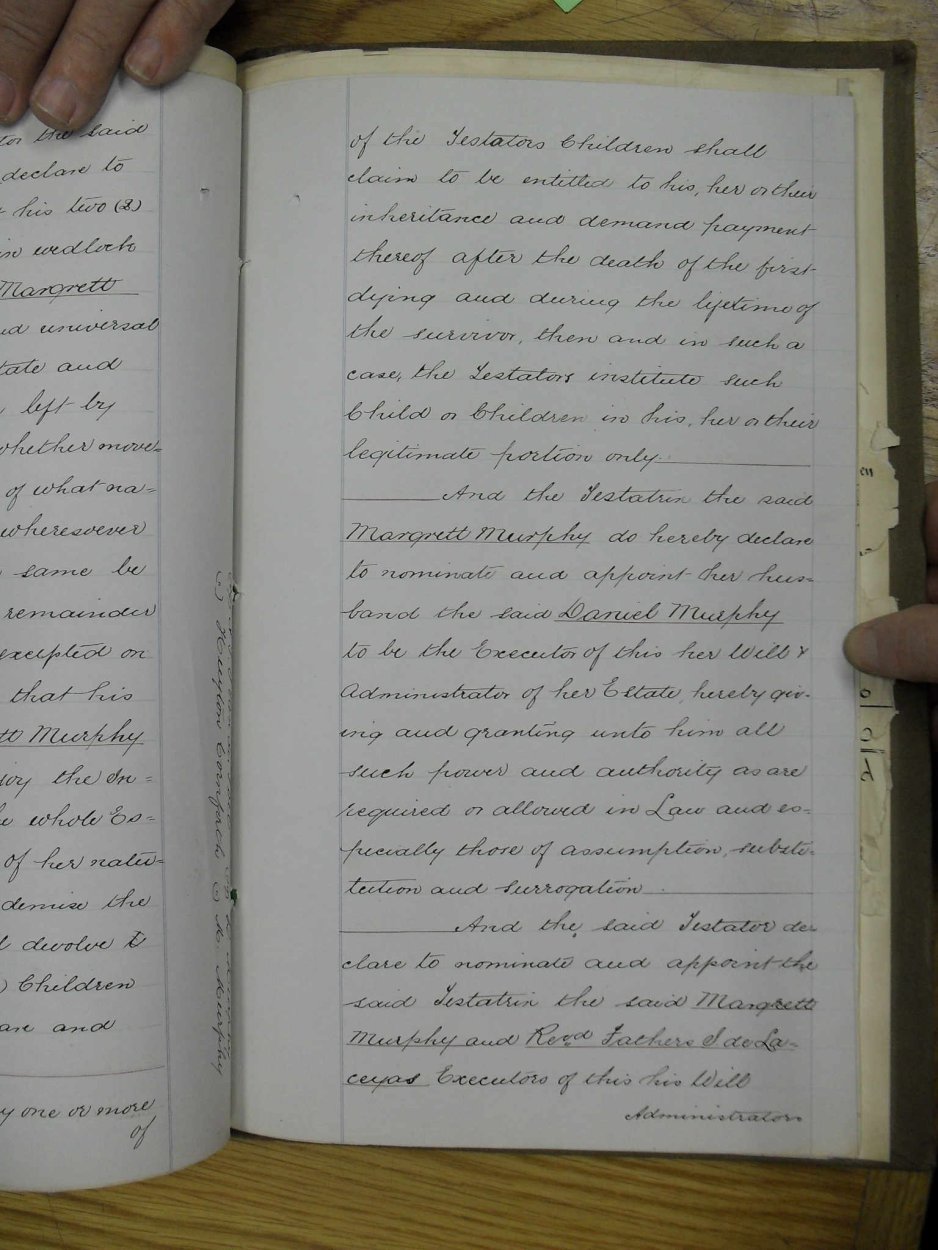 for the said
declare to
his two (2)
in wedlock
Margrett
universal
and
left by
whether move-
of what na=
wheresoever
same be
remainder
excepted or
that his
Murphy
the In=
whole Es=
of her natu=
demise the
devolve to
Children
and
one or more
of
of the Testators Children shall
claim to be entitled to his, her or their
inheritance and demand payment
thereof after the death of the first
dying and during the lifetime of
the survivor, then and in such a
case, the Testators institute such
Child or Children in his, her or their
legitimate portion only.
And the Testatrix the said
Margrett Murphy do hereby declare
to nominate and appoint her hus=
band the said Daniel Murphy
to be the Executor of this her Will &
Administrator of her Estate, hereby giv-
ing and granting unto him all
such power and authority as are
required or allowed in Law and es=
pecially those of assumption, substi-
tution and surrogation
And the said Testator de-
clare to nominate and appoint the
said Testatrix the said Margrett
Murphy and Revd Fathers I de La-
ceyas Executors of this his Will
Administrators
Murphy